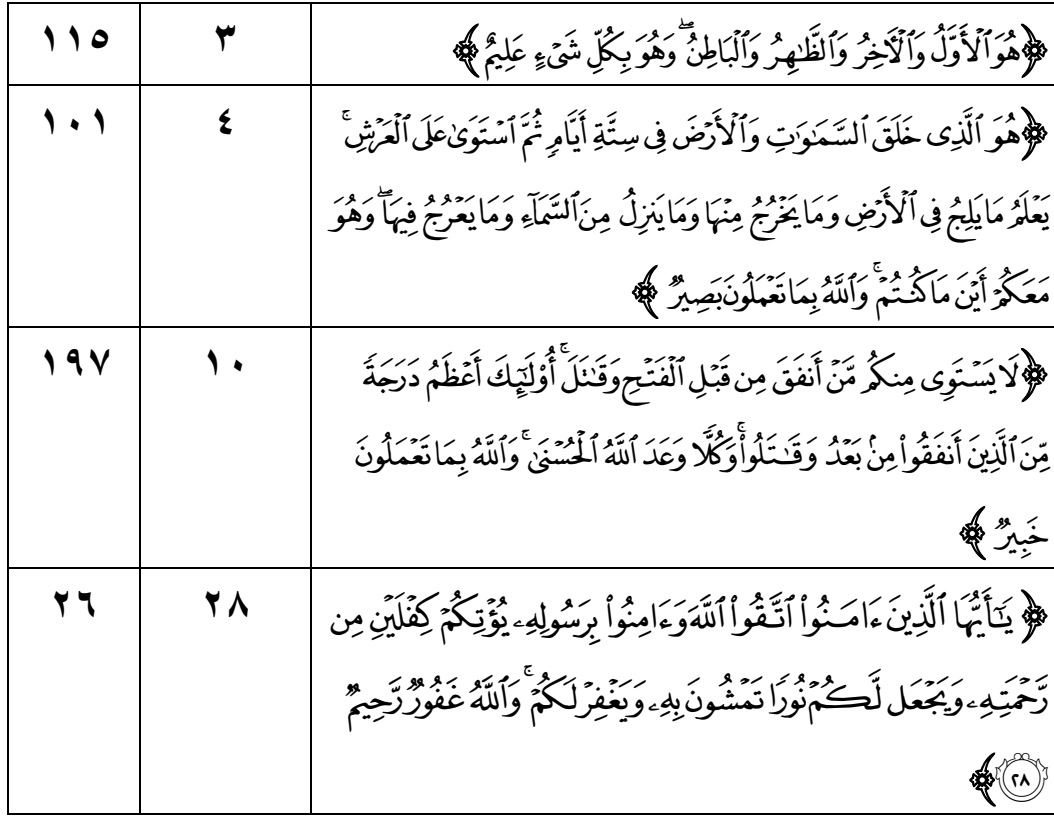 ﴿هُوَ ٱلْأَوَّلُ وَٱلْـَٔاخِرُ وَٱلظَّٰهِرُ وَٱلْبَاطِنُ ۖ وَهُوَ بِكُلِّ شَىْءٍ عَلِيمٌ﴾ ٣ ١١٥
﴿هُوَ ٱلَّذِى خَلَقَ ٱلسَّمَٰوَٰتِ وَٱلْأَرْضَ فِى سِتَّةِ أَيَّامٍ ثُمَّ ٱسْتَوَىٰ عَلَى ٱلْعَرْشِ ۚ ٤ ١٠١
يَعْلَمُ مَا يَلِجُ فِى ٱلْأَرْضِ وَمَا يَخْرُجُ مِنْهَا وَمَا يَنزِلُ مِنَ ٱلسَّمَآءِ وَمَا يَعْرُجُ فِيهَا ۖ وَهُوَ
مَعَكُمْ أَيْنَ مَا كُنتُمْ ۚ وَٱللَّهُ بِمَا تَعْمَلُونَ بَصِيرٌ ﴾
﴿لَا يَسْتَوِى مِنكُم مَّنْ أَنفَقَ مِن قَبْلِ ٱلْفَتْحِ وَقَٰتَلَ ۚ أُو۟لَٰٓئِكَ أَعْظَمُ دَرَجَةً ١٠ ١٩٧
مِّنَ ٱلَّذِينَ أَنفَقُوا۟ مِنۢ بَعْدُ وَقَٰتَلُوا۟ ۚ وَكُلًّا وَعَدَ ٱللَّهُ ٱلْحُسْنَىٰ ۚ وَٱللَّهُ بِمَا تَعْمَلُونَ
خَبِيرٌ ﴾
﴿ يَٰٓأَيُّهَا ٱلَّذِينَ ءَامَنُوا۟ ٱتَّقُوا۟ ٱللَّهَ وَءَامِنُوا۟ بِرَسُولِهِۦ يُؤْتِكُمْ كِفْلَيْنِ مِن ٢٨ ٢٦
رَّحْمَتِهِۦ وَيَجْعَل لَّكُمْ نُورًا تَمْشُونَ بِهِۦ وَيَغْفِرْ لَكُمْ ۚ وَٱللَّهُ غَفُورٌ رَّحِيمٌ
٢٨﴾